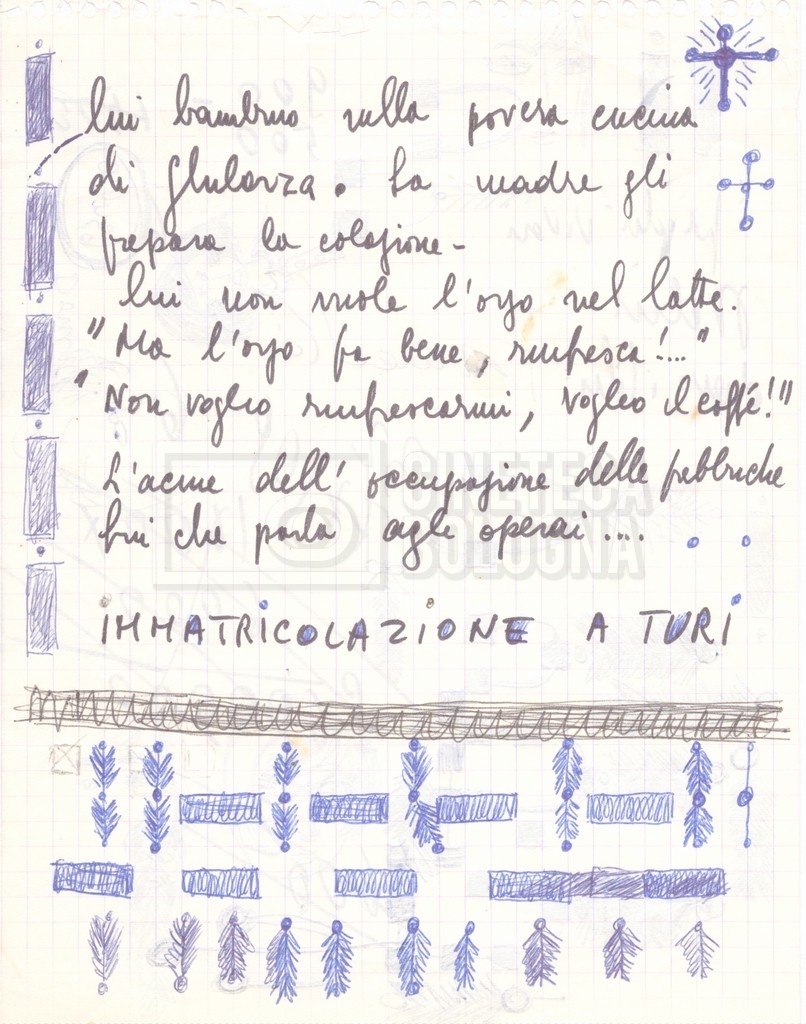 lui bambino nella povera cucina
di Ghilarza. La madre gli
prepara la colazione -
lui non vuole l'orzo nel latte.
"Ma l'orzo fa bene, rinfresca!..."
"Non voglio rinfrescarmi, voglio il caffé!"
L'acme dell'occupazione delle fabbriche
lui che parla agli operai....
IMMATRICOLAZIONE A TURI
CINETECA
BOLOGNA